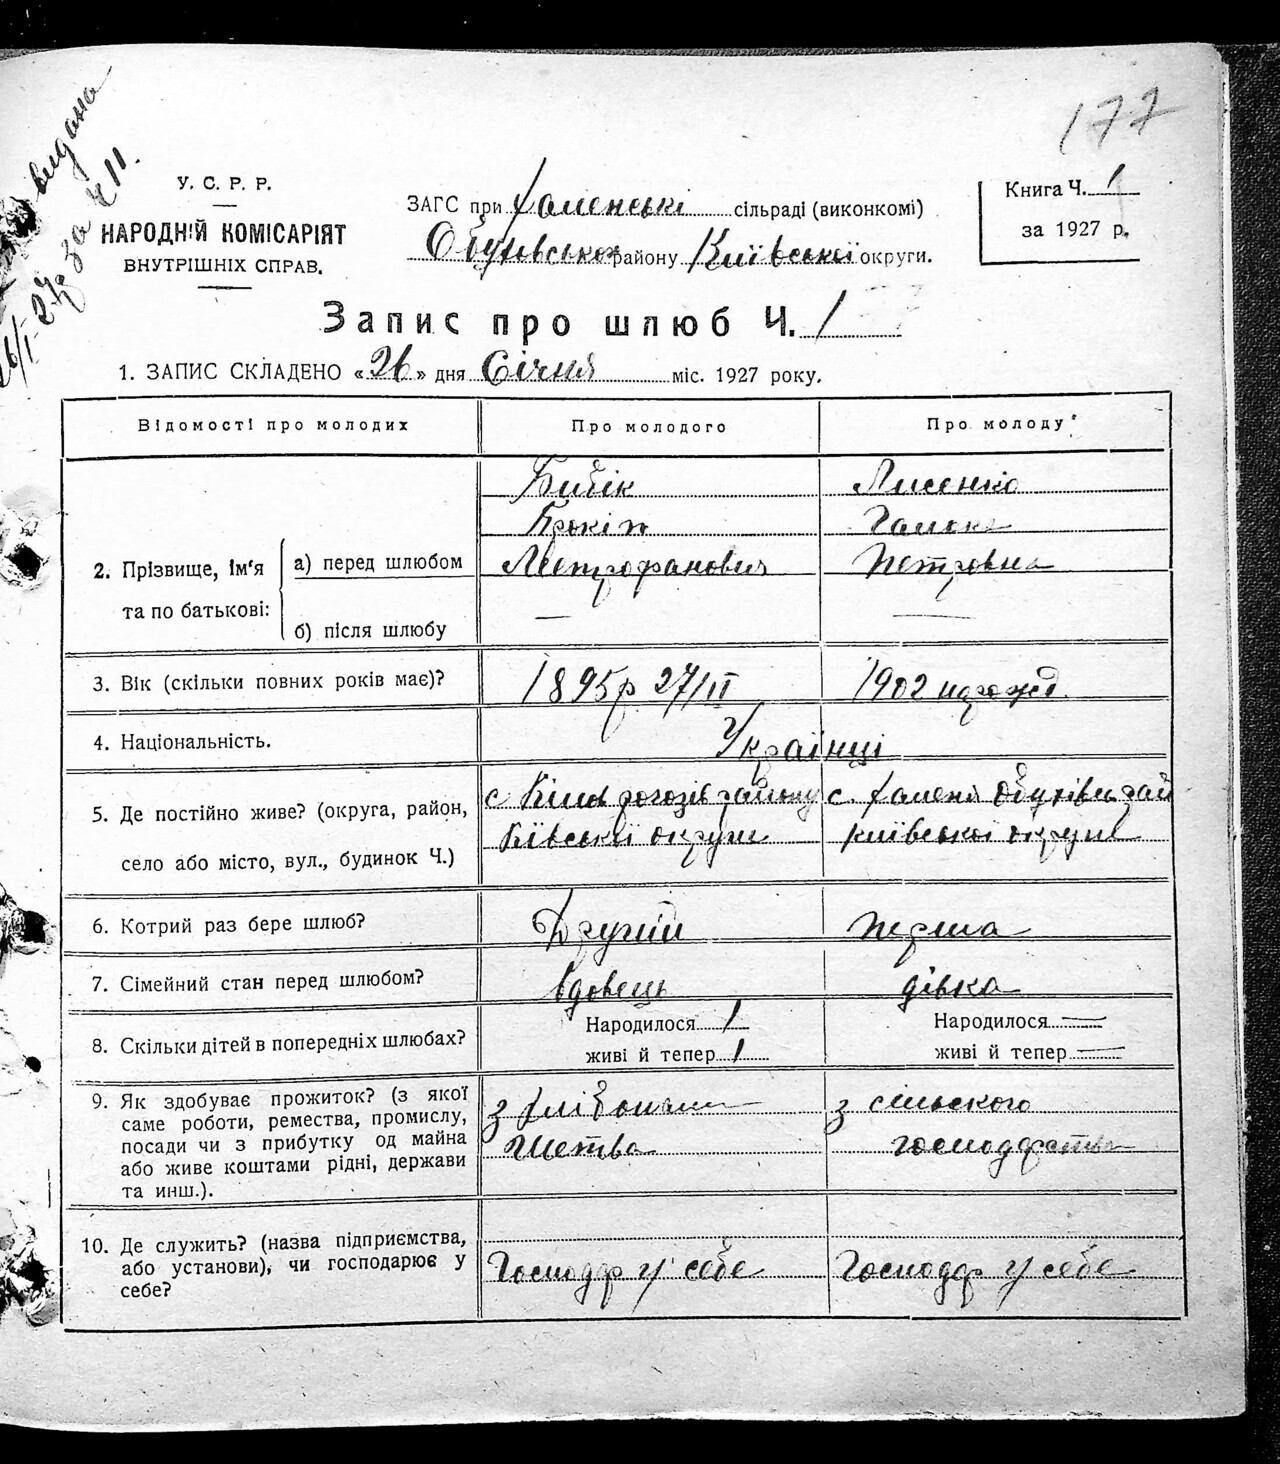 177
видана
за ч 11.
У. С. Р. Р.
НАРОДНІЙ КОМІСАРІЯТ
ВНУТРІШНІХ СПРАВ.
ЗАГС при Халепські сільраді (виконкомі)
району Київської округи.
Книга Ч. 1
за 1927 р.
Запис про шлюб Ч. 1
1. ЗАПИС СКЛАДЕНО «26» дня Січня міс. 1927 року.
Відомості про молодих
Про молодого
Про молоду
2. Прізвище, ім'я та по батькові:
а) перед шлюбом
Бибік
Прокіп
Метрофанович
Лисенко
Галька
Петровна
б) після шлюбу
—
—
3. Вік (скільки повних років має)?
1895р 27/II
1902 нарожд.
4. Національність.
Українці
5. Де постійно живе? (округа, район,
село або місто, вул., будинок Ч.)
с. району
Київської округи
с. Халепя Обухівськ рай
Київської округи
6. Котрий раз бере шлюб?
Другий
перша
7. Сімейний стан перед шлюбом?
вдовець
дівка
8. Скільки дітей в попередніх шлюбах?
Народилося 1
живі й тепер 1
Народилося —
живі й тепер —
9. Як здобуває прожиток? (з якої
саме роботи, ремества, промислу,
посади чи з прибутку од майна
або живе коштами рідні, держави
та инш.).
з хлібопа
шетва
з сільського
господарства
10. Де служить? (назва підприємства,
або установи), чи господарює у
себе?
Господар у себе
Господар у себе